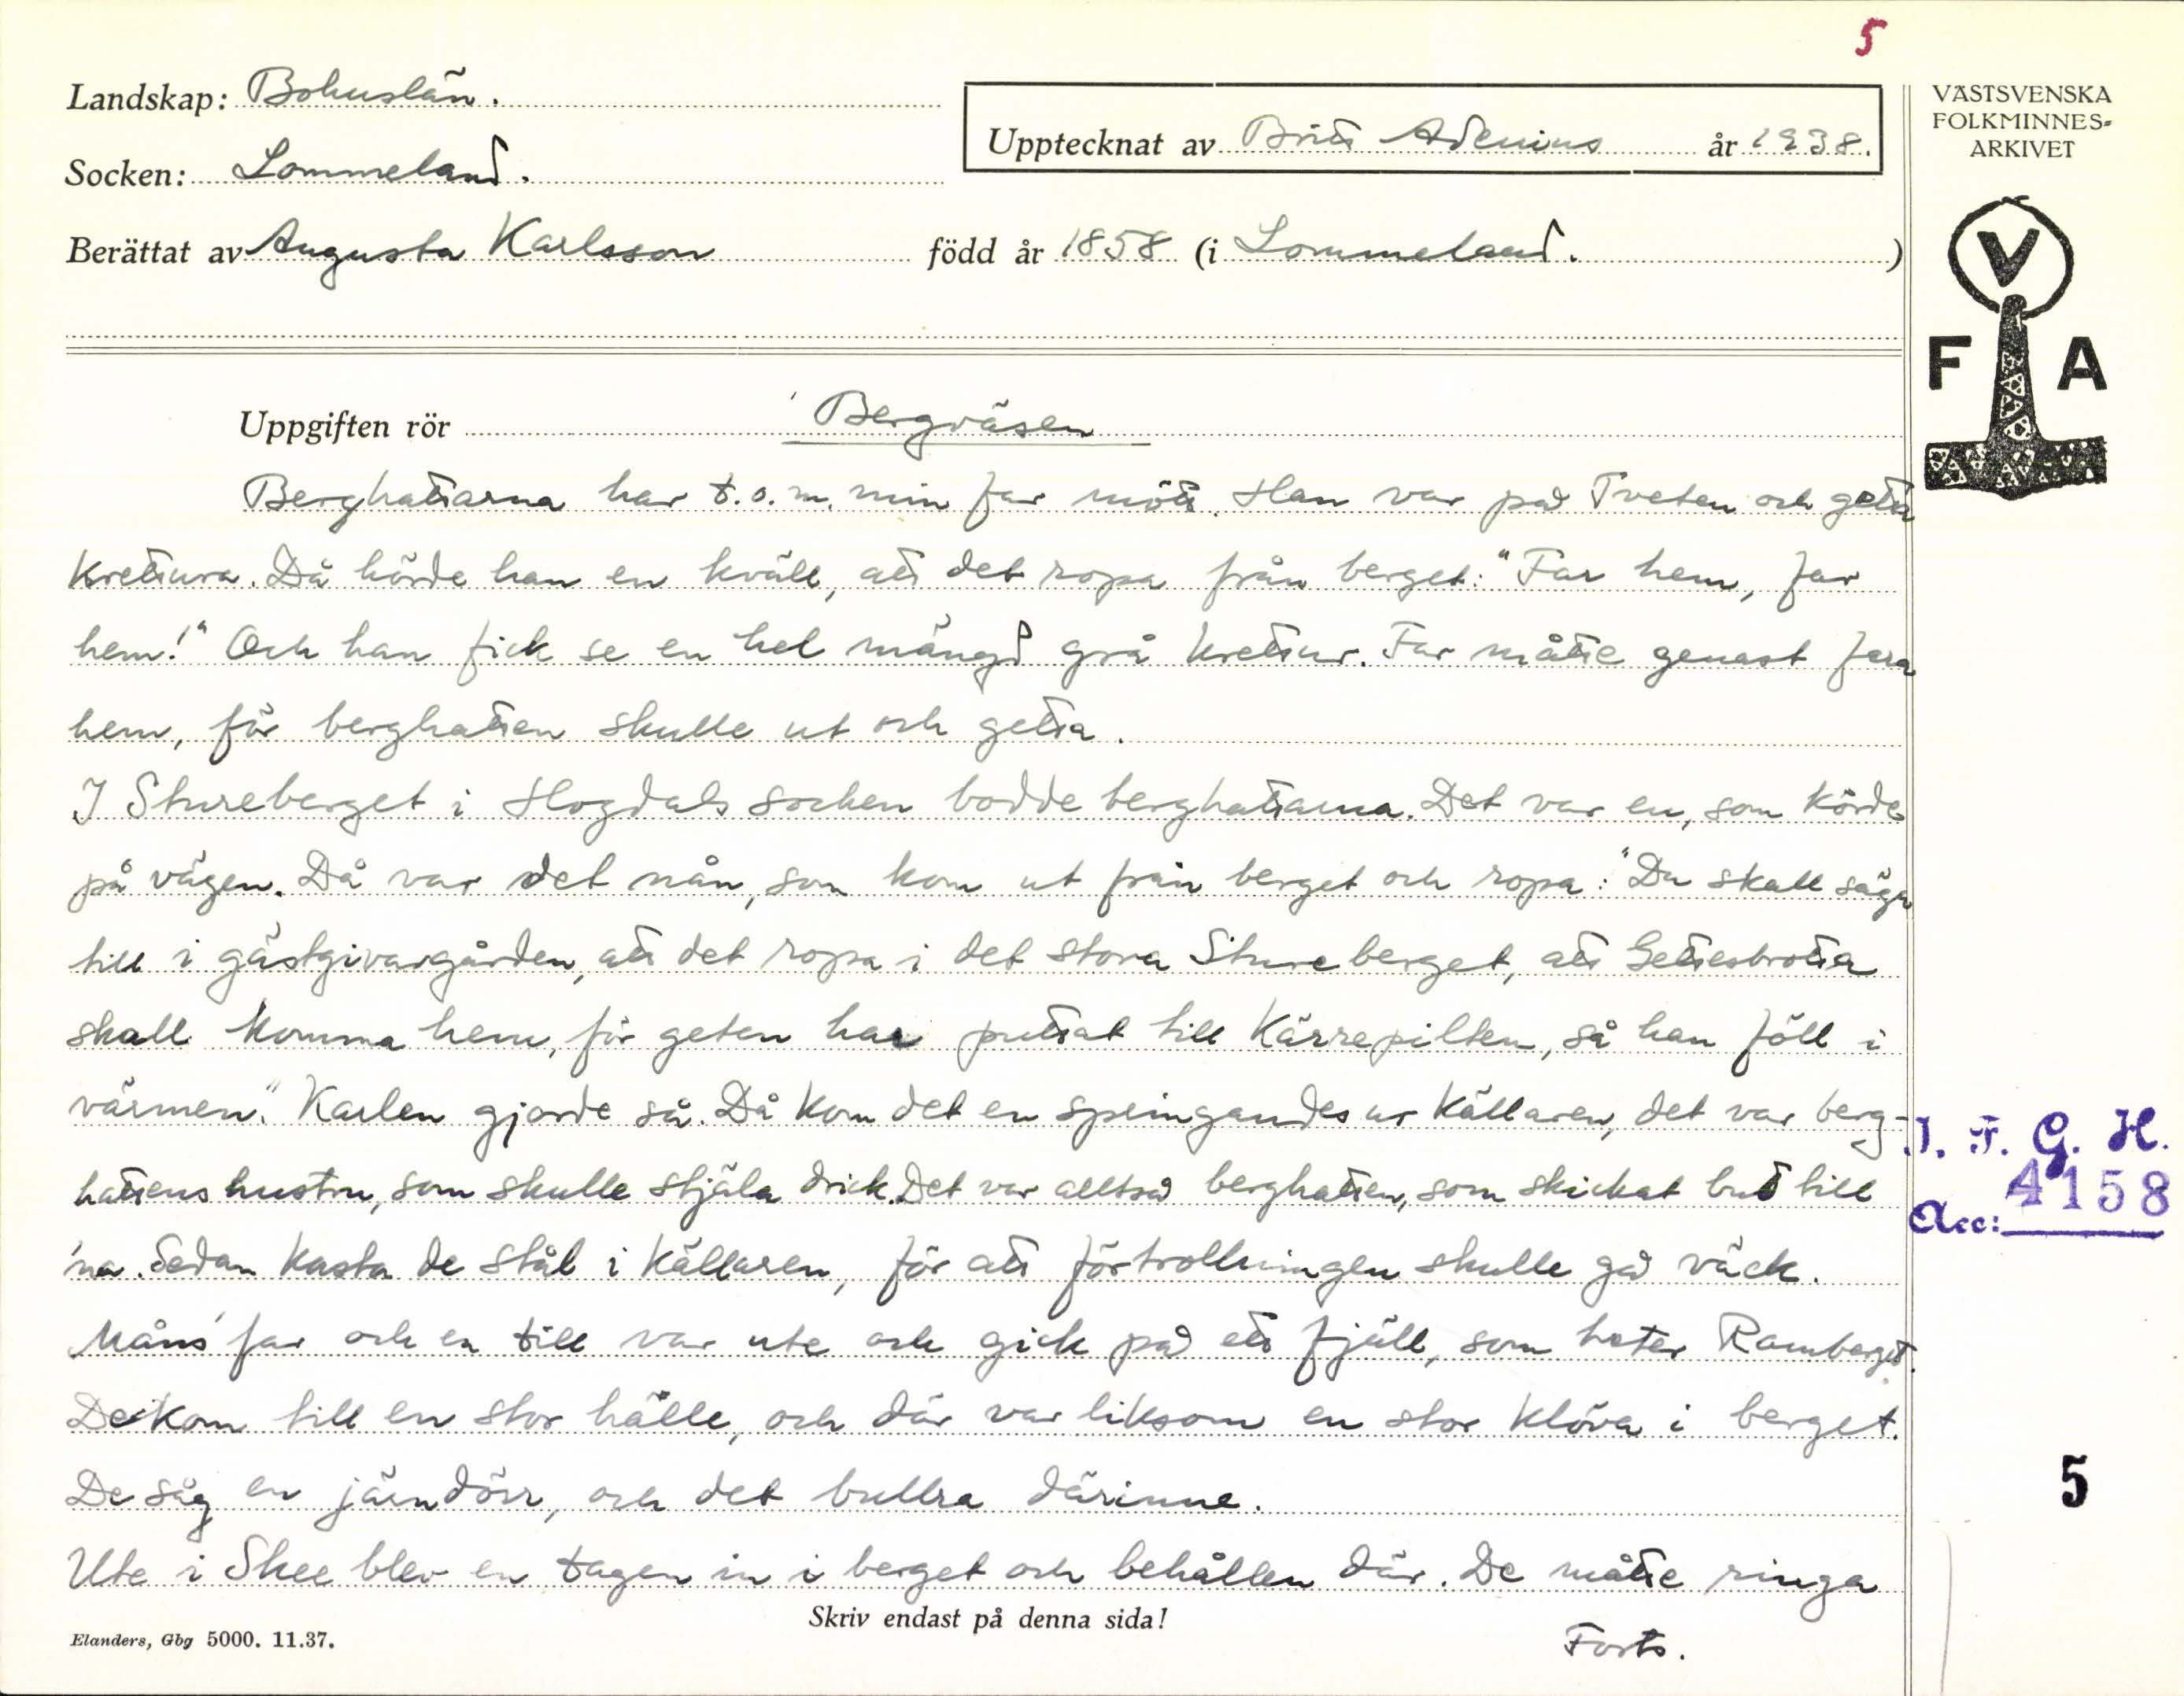 5
Landskap: Bohuslän.
Socken: Lommeland.
Upptecknat av Britt Adenius år 1938.
Berättat av Augusta Karlsson född år 1858 (i Lommeland.)
VÄSTSVENSKA
FOLKMINNES-
ARKIVET
V
F A
Uppgiften rör Bergväsen
Berghattarna har t.o.m. min far mött. Han var på Tveten och getta
krettura. Då hörde han en kväll, att det ropa från berget: "Far hem, far
hem!" Och han fick se en hel mängd grå krettur. Far måtte genast fara
hem, för berghatten skulle ut och getta.
I Stureberget i Hogdals socken bodde berghattarna. Det var en, som körde
på vägen. Då var det nån, som kom ut från berget och ropa: "Du skall säga
till i gästgivargården, att det ropa i det stora Stureberget, att Gettesbrotta
skall komma hem, för geten har puttat till Kärrepilten, så han föll i
värmen." Karlen gjorde så. Då kom det en springandes ur källaren, det var berg-
hattens hustru, som skulle stjäla drick. Det var alltså berghatten, som skickat bud till
'na. Sedan kasta de stål i källaren, för att förtrollningen skulle gå väck.
Måns' far och en till var ute och gick på ett fjäll, som heter Ramberget.
De kom till en stor hälle, och där var liksom en stor klöva i berget.
De såg en järndörr, och det bullra därinne.
Ute i Skee blev en tagen in i berget och behållen där. De måtte ringa
Forts.
Skriv endast på denna sida!
Elanders, Gbg 5000. 11.37.
I. F. G. H.
Acc: 4158
5